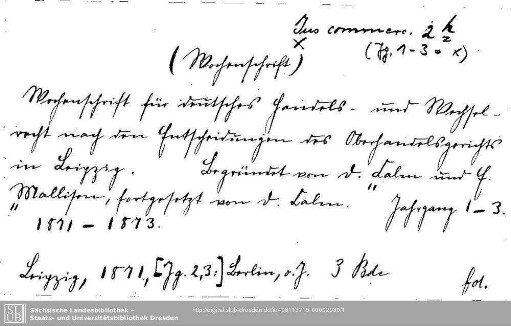 Jus commerc. 2 h
x
(Jg. 1-3 = x)
(Wochenschrift)
Wochenschrift für deutsches Handels- und Wechsel-
recht nach den Entscheidungen des Oberhandelsgerichts
in Leipzig. Begründet von D. Calm und E.
Mallison, fortgesetzt von D. Calm. Jahrgang 1-3.
1871-1873.
Leipzig, 1871, [Jg. 2,3:] Berlin, o. J. 3 Bde
fol.
SLUB
Sächsische Landesbibliothek –
Staats- und Universitätsbibliothek Dresden